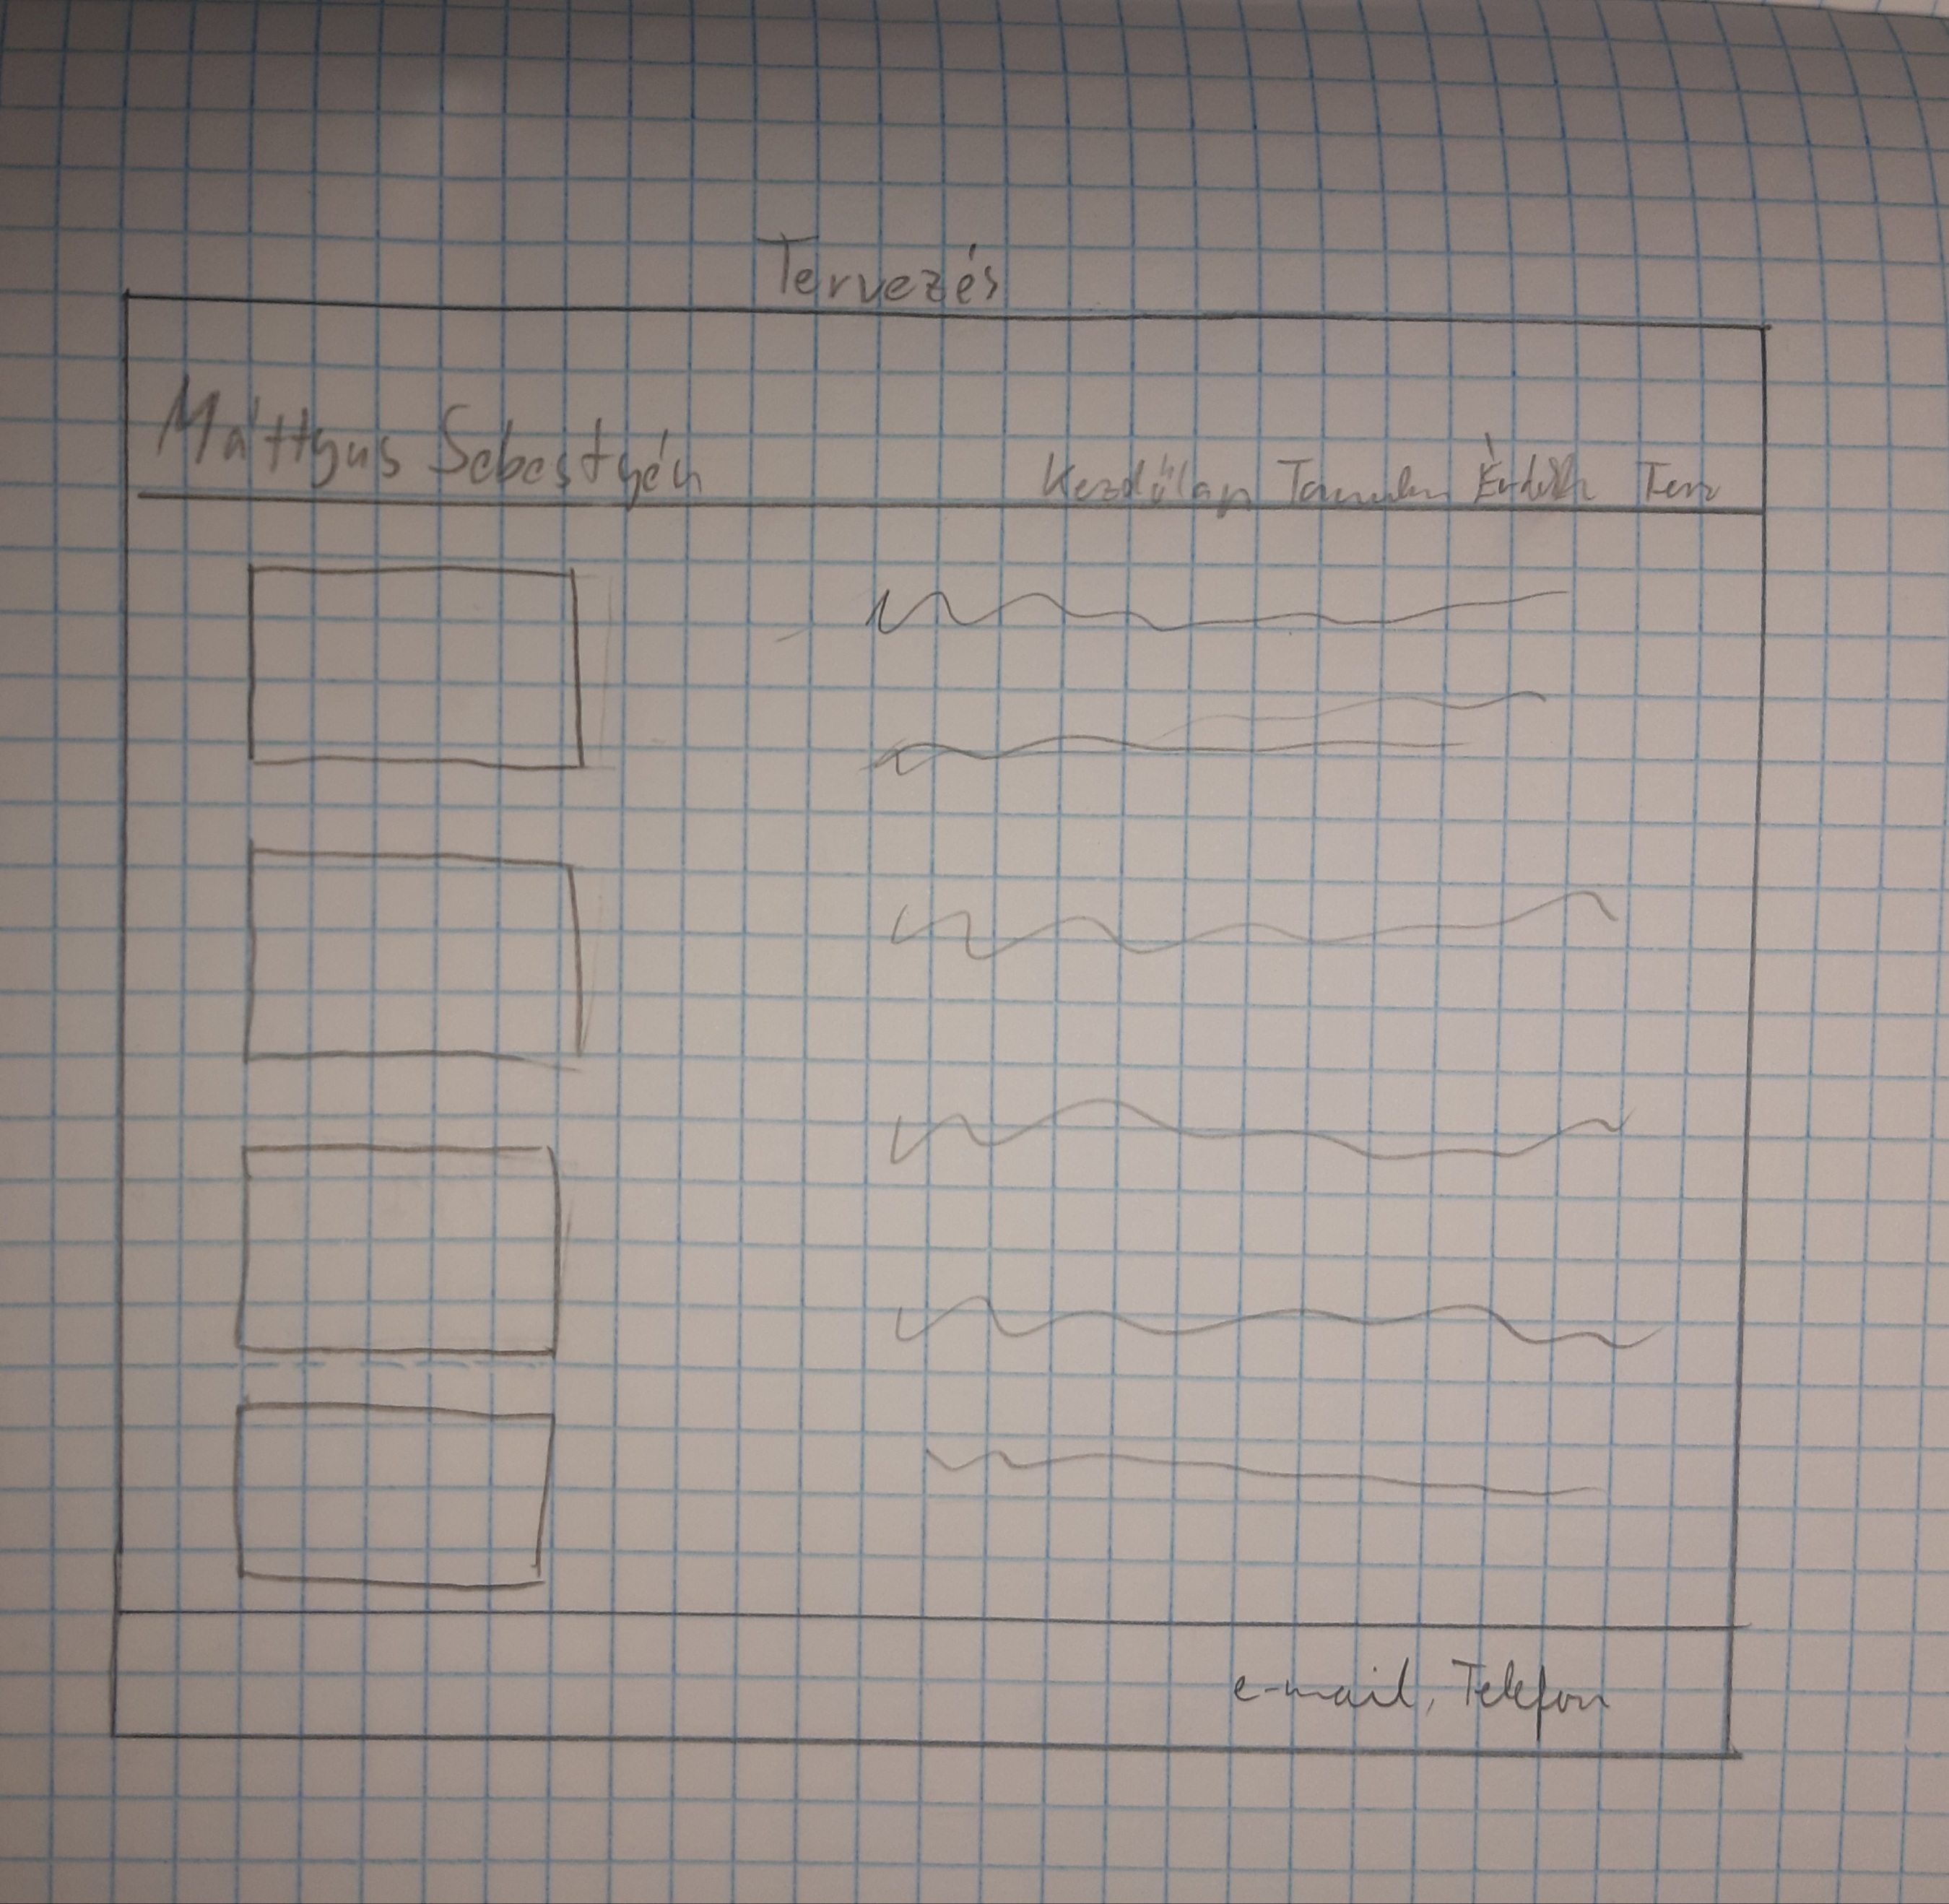 Tervezés
Máttyus Sebestyén
Kezdőlap Terv
e-mail, Telefon